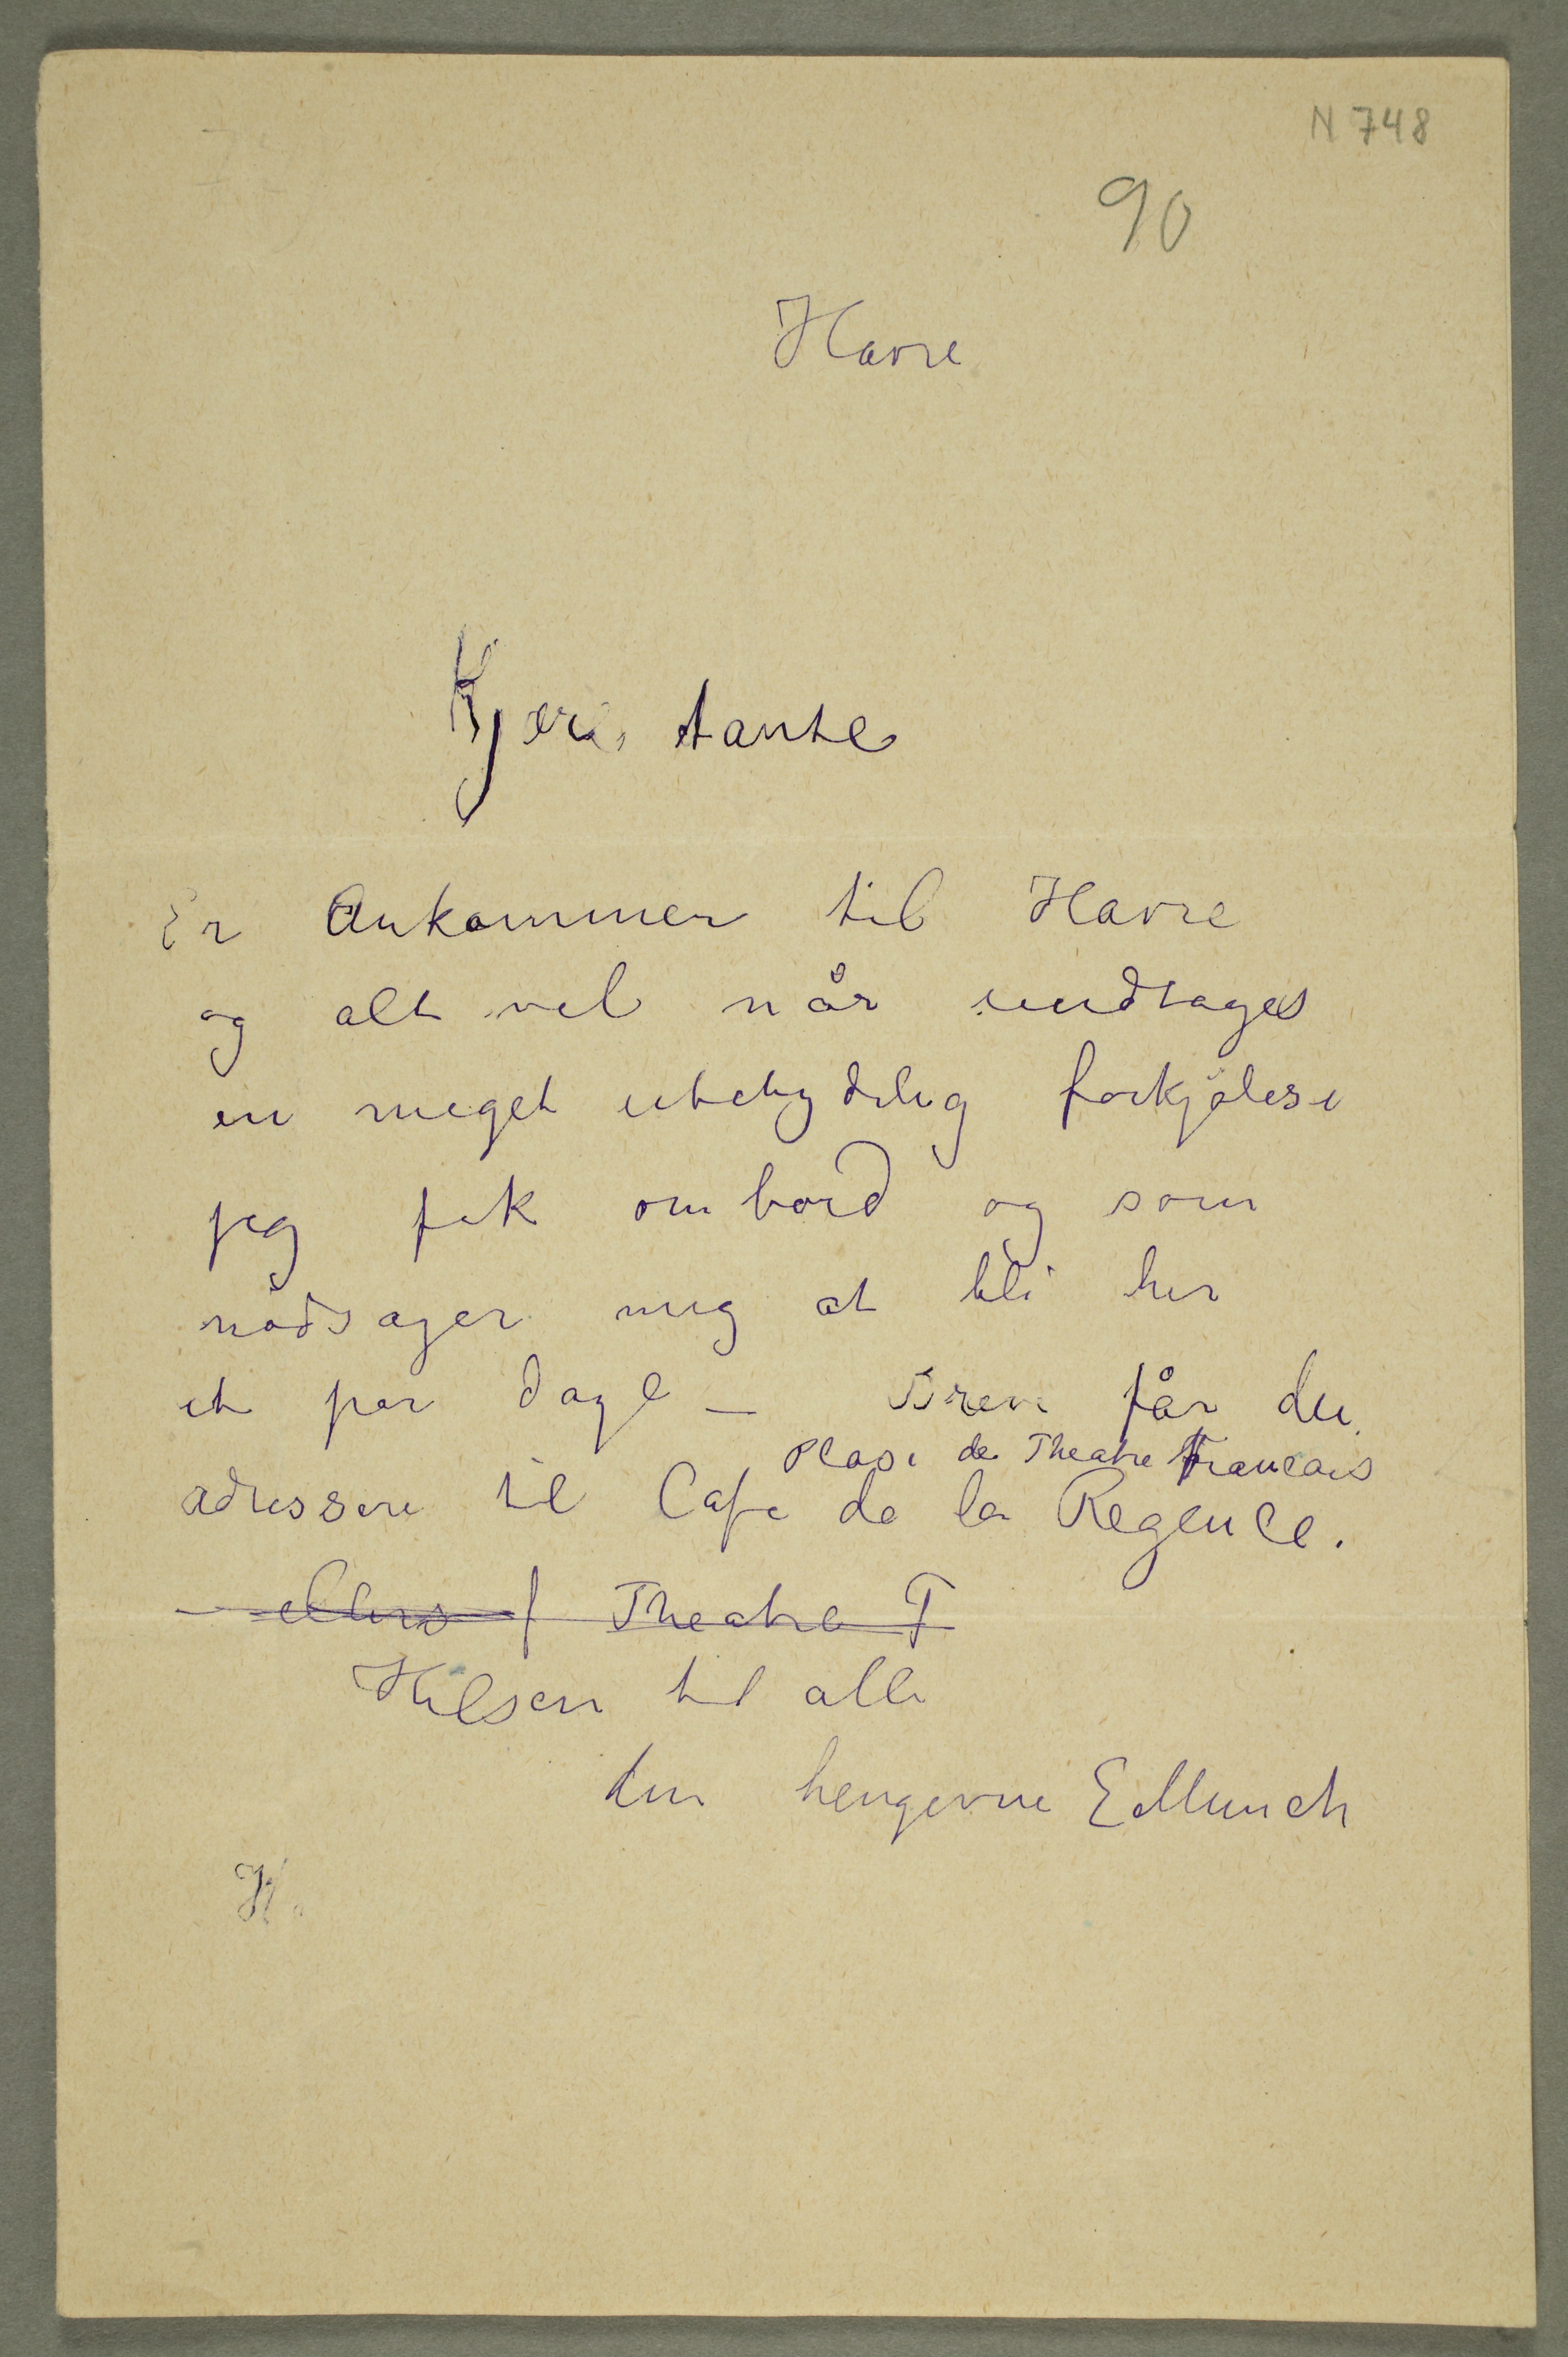 N 748
90
Havre
Kjære tante
Er Ankommen til Havre
og alt vel når undtages
en meget ubetydelig forkjølese
jeg fik ombord og som
nødsager mig at bli her
et par dage – Brev får du
Plase de Theatre Francais
adressere til Cafe de la Regence.
– ellers f Theatre F
Hilsen til alle
din hengivne EMunch
H.